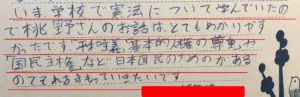 いま学校で憲法について学んでいたの
で桃野さんのお話は、とてもわかりやす
かったです。平和主義、基本的人権の尊重や、
国民主権など、日本国民のためのがある
のでそれをまもっていきたいです。